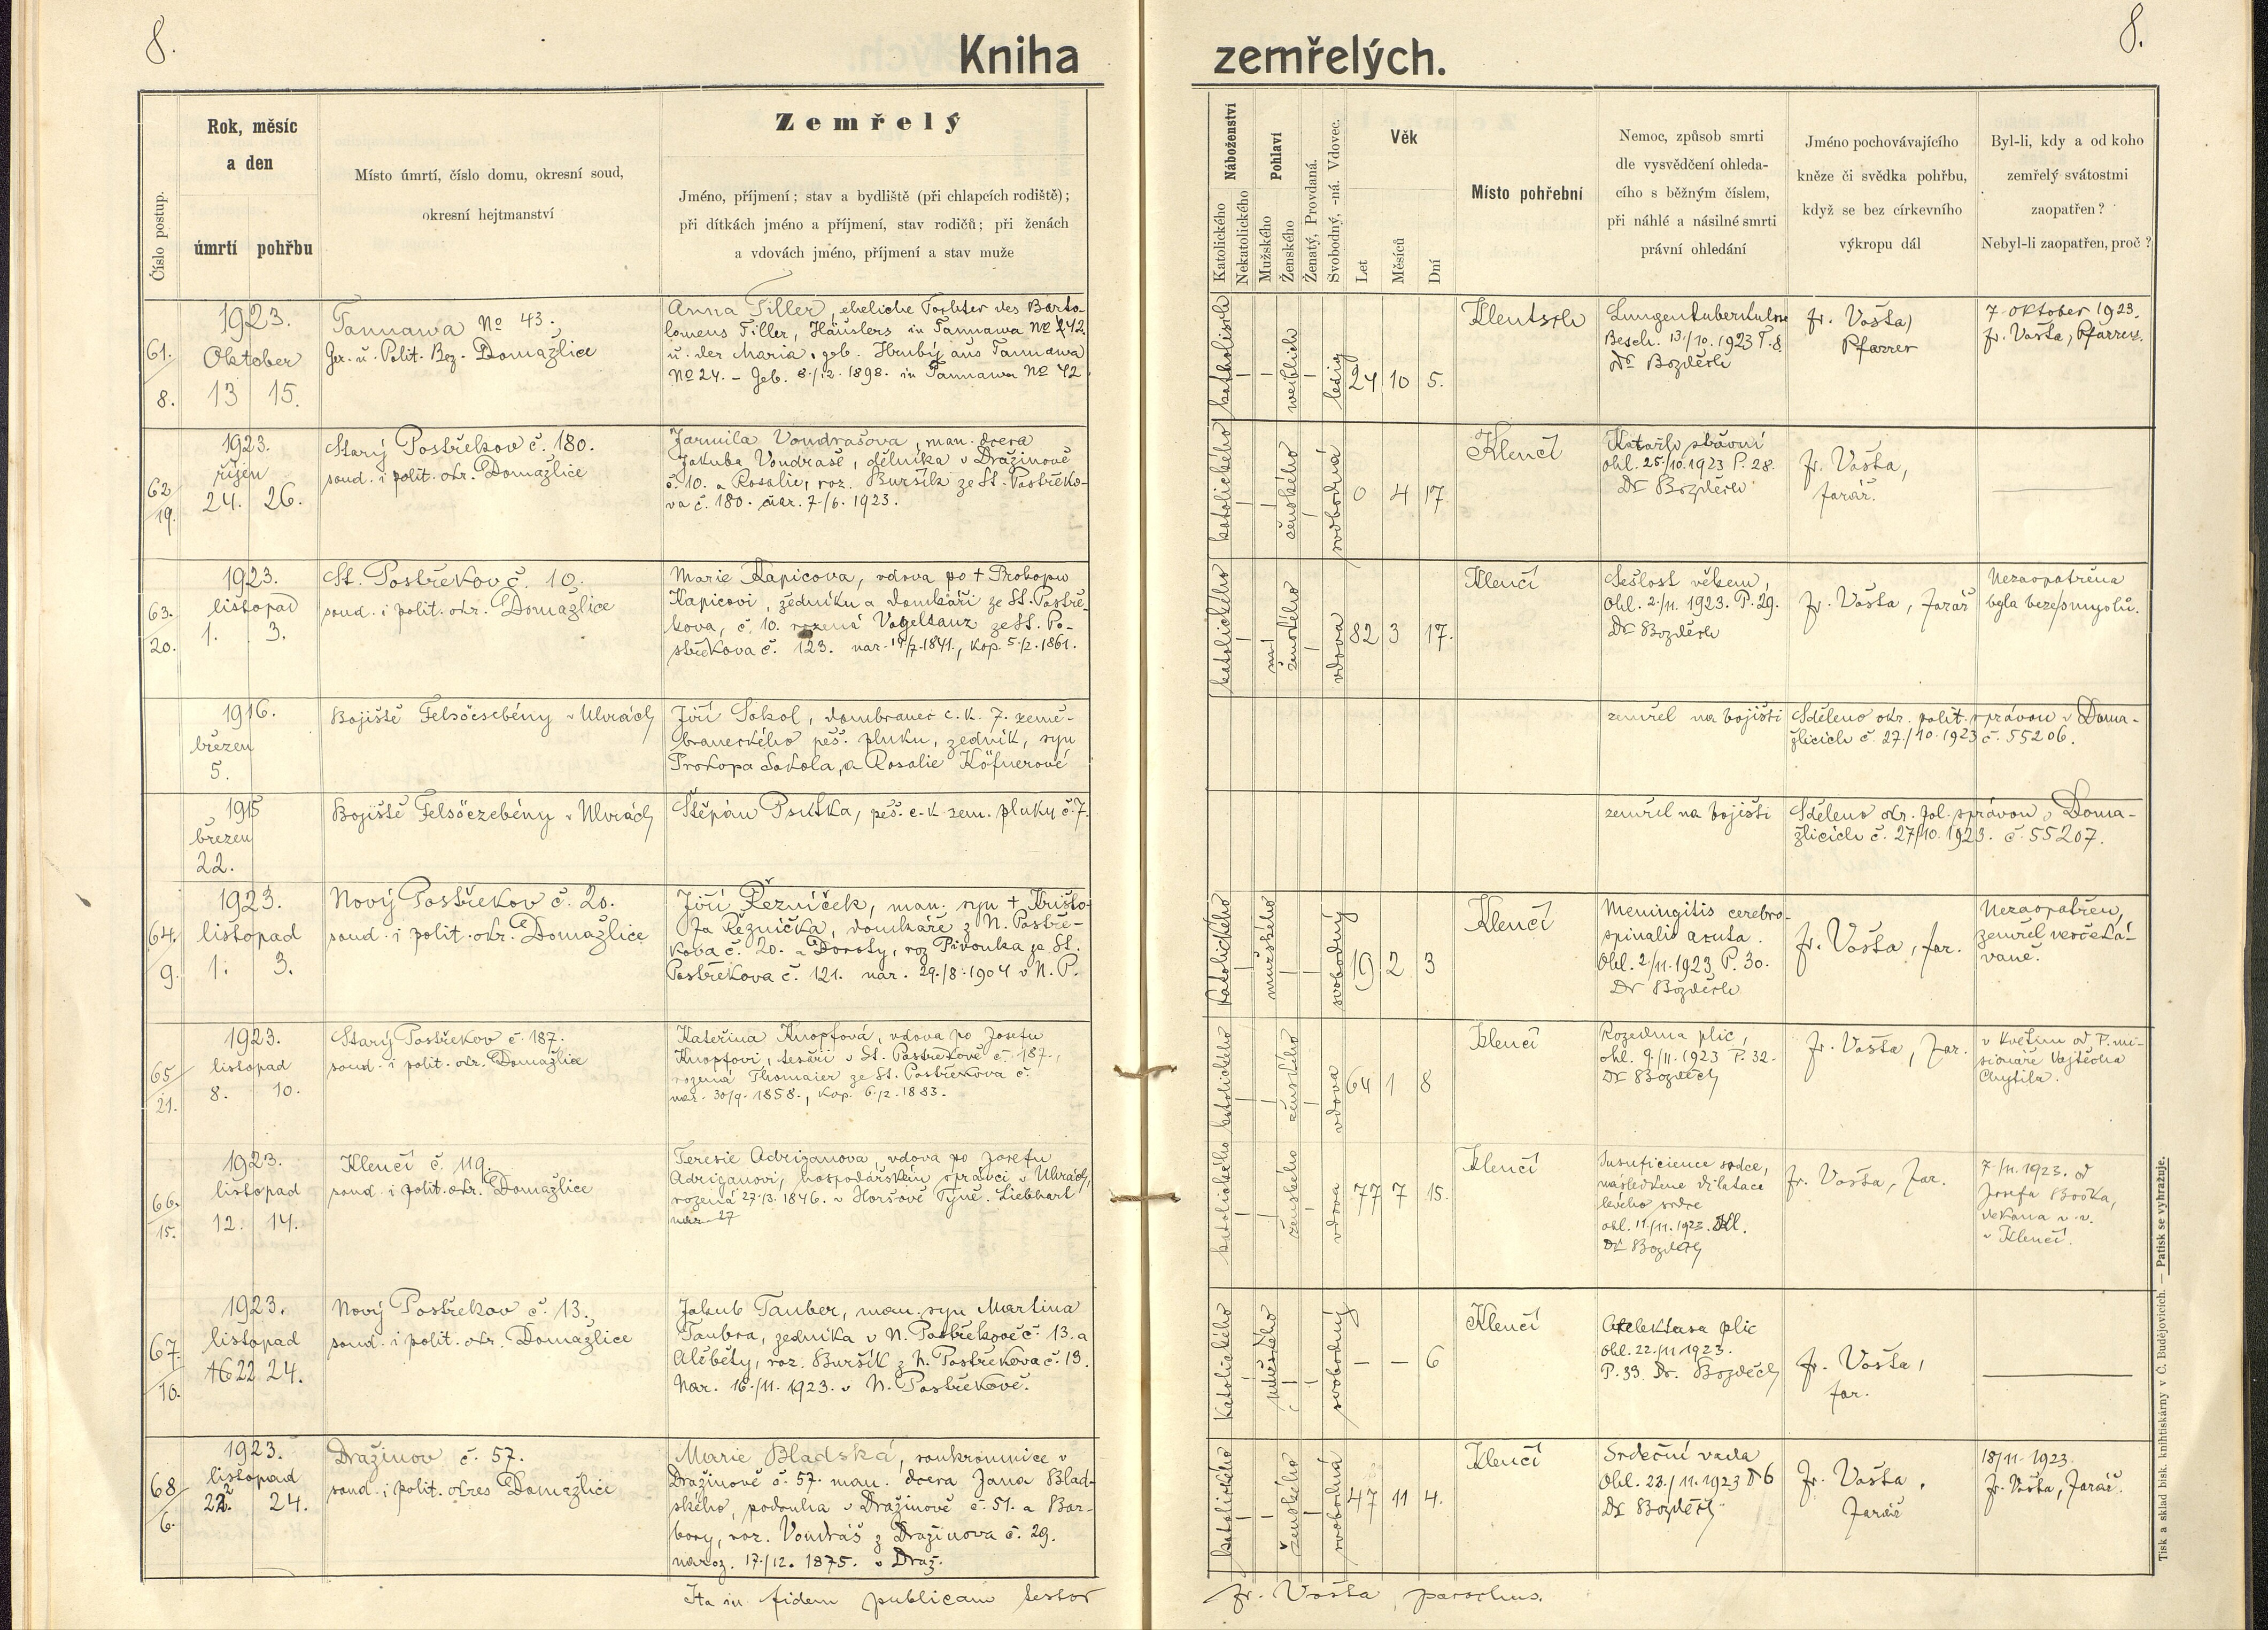 8.
Kniha
zemřelých.
8.
Číslo postup.
Rok, měsíc
a den
úmrtí pohřbu
Místo úmrtí, číslo domu, okresní soud,
okresní hejtmanství
Zemřelý
Jméno, příjmení; stav a bydliště (při chlapcích rodiště);
při dítkách jméno a příjmení, stav rodičů; při ženách
a vdovách jméno, příjmení a stav muže
Náboženství
Katolického
Nekatolického
Pohlaví
Mužského
Ženského
Ženatý, Provdaná.
Svobodný, -ná. Vdovec.
Věk
Let
Měsíců
Dní
Místo pohřební
Nemoc, způsob smrti
dle vysvědčení ohleda-
cího s běžným číslem,
při náhlé a násilné smrti
právní ohledání
Jméno pochovávajícího
kněze či svědka pohřbu,
když se bez církevního
výkropu dál
Byl-li, kdy a od koho
zemřelý svátostmi
zaopatřen?
Nebyl-li zaopatřen, proč?
61.
8.
1923.
Oktober
13 15.
Tannawa No 43.
Ger. u. Polit. Bez. Domažlice
Anna Tiller, eheliche Tochter des Barto-
lomeus Tiller, Häuslers in Tannawa No 42
u. der Maria, geb. Hrubý aus Tannawa
No 24. - Geb. 8./12. 1898. in Tannawa No 42
katholisch
weiblich
ledig
24 10 5.
Klentsch
Lungentuberkulose
Besch. 13/10. 1923 P. 8.
Dr Bozděch
Fr. Vošta,
Pfarrer
7. Oktober 1923.
Fr. Vošta, Pfarrer.
62
19.
1923.
říjen
24. 26.
Starý Postřekov č. 180.
soud. i polit. okr. Domažlice
Jarmila Vondrašova, man. dcera
Jakuba Vondraše, dělníka v Dražinově
č. 10. a Rosalie, roz. Buršík ze St. Postřeko-
va č. 180. nar. 7./6. 1923.
katolického
ženského
svobodná
0 4 17.
Klenčí
Katarh střevní
ohl. 25./10. 1923 P. 28.
Dr Bozděch
Fr. Vošta,
farář.
63.
20.
1923.
listopad
1. 3.
St. Postřekov č. 10.
soud. i polit. okr. Domažlice
Marie Kapicova, vdova po + Prokopu
Kapicovi, zedníku a domkáři ze St. Postře-
kova, č. 10. rozená Vogeltanz ze St. Po-
střekova č. 123. nar. 14/7. 1841., kop. 5./2. 1861.
katolického
ženského
vdova
82 3 17.
Klenčí
Sešlost věkem,
Ohl. 2/11. 1923. P. 29.
Dr Bozděch
Fr. Vošta, farář
Nezaopatřena
byla beze smyslů.
1916.
březen
5.
Bojiště Felsöcsebény v Uhrách
Jiří Sokol, domobranec c. k. 7. země-
braneckého pěš. pluku, zedník, syn
Prokopa Sokola, a Rosalie Köfnerové
zemřel na bojišti
Sděleno okr. polit. správou v Doma-
žlicích č. 27./10. 1923 č. 55206.
1915
březen
22.
Bojiště Felsöczebény v Uhrách
Štěpán Psutka, pěš. c. k. zem. pluku č. 7.
zemřel na bojišti
Sděleno okr. pol. správou v Doma-
žlicích č. 27/10. 1923. č. 55207.
64.
9.
1923.
listopad
1. 3.
Nový Postřekov č. 20.
soud. i polit. okr. Domažlice
Jiří Řezníček, man. syn + Krišto-
fa Řezníčka, domkáře z N. Postře-
kova č. 20. a Doroty, roz. Pivonka ze St.
Postřekova č. 121. nar. 29./8. 1904 v N. P.
katolického
mužského
svobodný
19 2 3
Klenčí
Meningitis cerebro-
spinalis acuta.
Ohl. 2/11. 1923 P. 30.
Dr Bozděch
Fr. Vošta, far.
Nezaopatřen,
zemřel neočeká-
vaně.
65
21.
1923.
listopad
8. 10.
Starý Postřekov č. 187.
soud. i polit. okr. Domažlice
Kateřina Knopfová, vdova po Josefu
Knopfovi, tesaři v St. Postřekově č. 187.,
rozená Thomaier ze St. Postřekova č.
nar. 30/9. 1858., kop. 6./2. 1883.
katolického
ženského
vdova
64 1 8
Klenčí
Rozedma plic,
ohl. 9/11. 1923 P. 32.
Dr Bozděch
Fr. Vošta, far.
v květnu od P. mi-
sionáře Vojtěcha
Chytila.
66.
15.
1923.
listopad
12. 14.
Klenčí č. 119.
soud. i polit. okr. Domažlice
Teresie Adriganova, vdova po Josefu
Adriganovi, hospodářském správci v Uhrách,
rozená 27./3. 1846. v Horšově Týně. Liebhart
nar. 27
katolického
ženského
vdova
77 7 15.
Klenčí
Insuficience srdce,
následkem dilatace
levého srdce
ohl. 11/11. 1923. Kl.
Dr Bozděch
Fr. Vošta, far.
7./11. 1923. od
Josefa Bočka,
děkana v. v.
v Klenčí.
67.
10.
1923.
listopad
16 22 24.
Nový Postřekov č. 13.
soud. i polit. okr. Domažlice
Jakub Tauber, man. syn Martina
Taubra, zedníka v N. Postřekově č. 13. a
Alžběty, roz. Buršík z N. Postřekova č. 13.
Nar. 16./11. 1923. v N. Postřekově.
Katolického
mužského
svobodný
– – 6
Klenčí
Atelektasa plic
ohl. 22./11. 1923.
P. 33. Dr. Bozděch
Fr. Vošta,
far.
68
6.
1923.
listopad
22. 24.
Dražinov č. 57.
soud. i polit. okres Domažlice
Marie Bladská, soukromnice v
Dražinově č. 57. man. dcera Jana Blad-
ského, podruha v Dražinově č. 51. a Bar-
bory, roz. Vondráš z Dražinova č. 29.
naroz. 17./12. 1875. v Draž.
katolického
ženského
svobodná
47 11 4.
Klenčí
Srdeční vada
Ohl. 23./11. 1923 P 6
Dr Bozděch
Fr. Vošta,
farář
18/11. 1923.
Fr. Vošta, farář.
Ita in fidem publicam testor
Fr. Vošta, parochus.
Tisk a sklad bisk. knihtiskárny v Č. Budějovicích. — Patisk se vyhražuje.